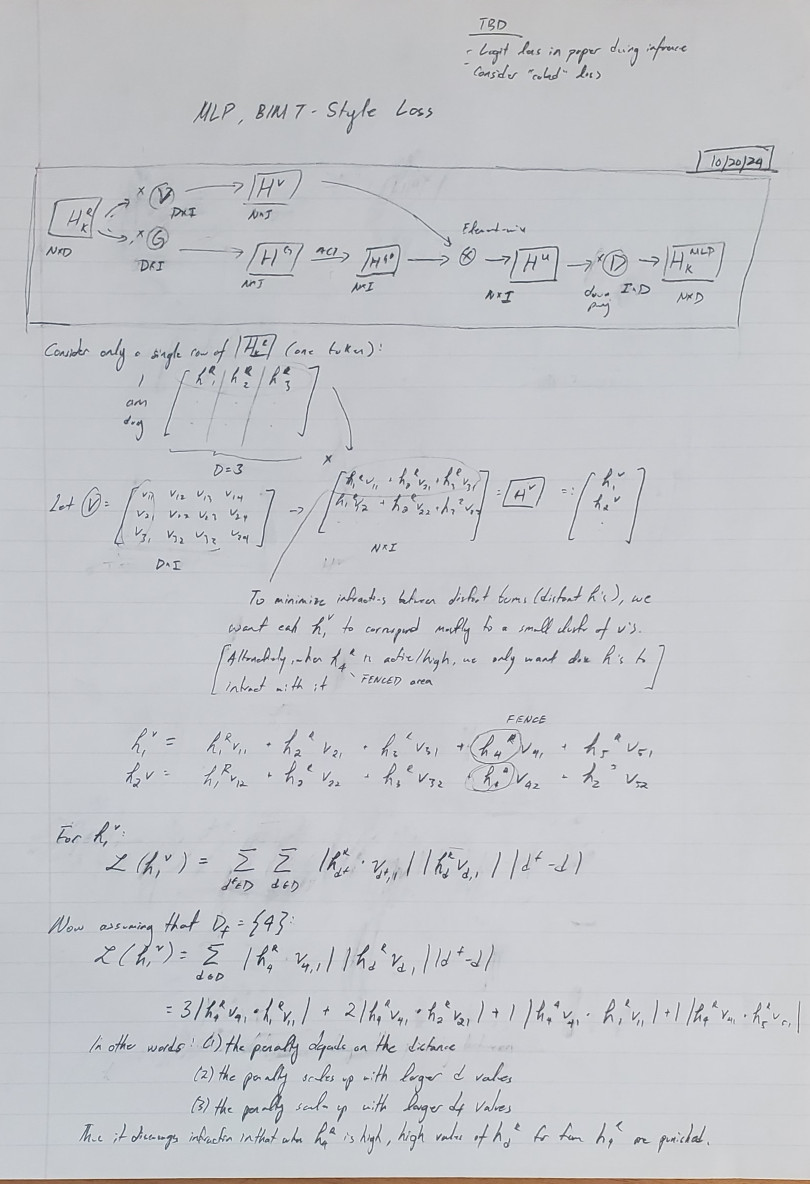 TBD
- Logit loss in paper during inference
- Consider "coded" loss
MLP, BIMT-Style Loss
10/20/24
H_K^R × V → H^V
N×D D×I N×I
× G → H^G ACT → H^{GA} → ⊗ → H^U → × D → H_K^{MLP}
D×I N×I N×I Elementwise N×I down proj I×D N×D
Consider only a single row of H_K^R (one token):
I [ h_1^R | h_2^R | h_3^R ]
am
dog
D=3 ×
Let V = [ v_11 v_12 v_13 v_14 → [ h_1^R v_11 + h_2^R v_21 + h_3^R v_31 = H^V =: [ h_1^V
v_21 v_22 v_23 v_24 h_1^R v_12 + h_2^R v_22 + h_3^R v_32 ] h_2^V
v_31 v_32 v_33 v_34 ] . ]
D×I N×I
To minimize interactions between distant terms (distant h's), we
want each h_1^V to correspond mostly to a small cluster of v's.
[Alternatively, when h_4^R is active/high, we only want close h's to
interact with it FENCED area]
FENCE
h_1^V = h_1^R v_11 + h_2^R v_21 + h_3^R v_31 + h_4^R v_41 + h_5^R v_51
h_2^V = h_1^R v_12 + h_2^R v_22 + h_3^R v_32 + h_4^R v_42 + h_2^R v_52
For h_1^V:
L(h_1^V) = Σ_{d^f∈D} Σ_{d∈D} |h_{d^f}^R · v_{d^f,1}| |h_d^R v_{d,1}| |d^f - d|
Now assuming that D_f = {4}:
L(h_1^V) = Σ_{d∈D} |h_4^R v_{4,1}| |h_d^R v_{d,1}| |d^f - d|
= 3|h_4^R v_41 · h_1^R v_11| + 2|h_4^R v_41 · h_2^R v_21| + 1|h_4^R v_41 · h_1^R v_11| + 1|h_4^R v_41 · h_5^R v_51|
In other words: (1) the penalty depends on the distance
(2) the penalty scales up with larger d values
(3) the penalty scales up with larger df values
Thus it discourages interaction in that when h_4^R is high, high values of h_d^R far from h_4^R are punished.